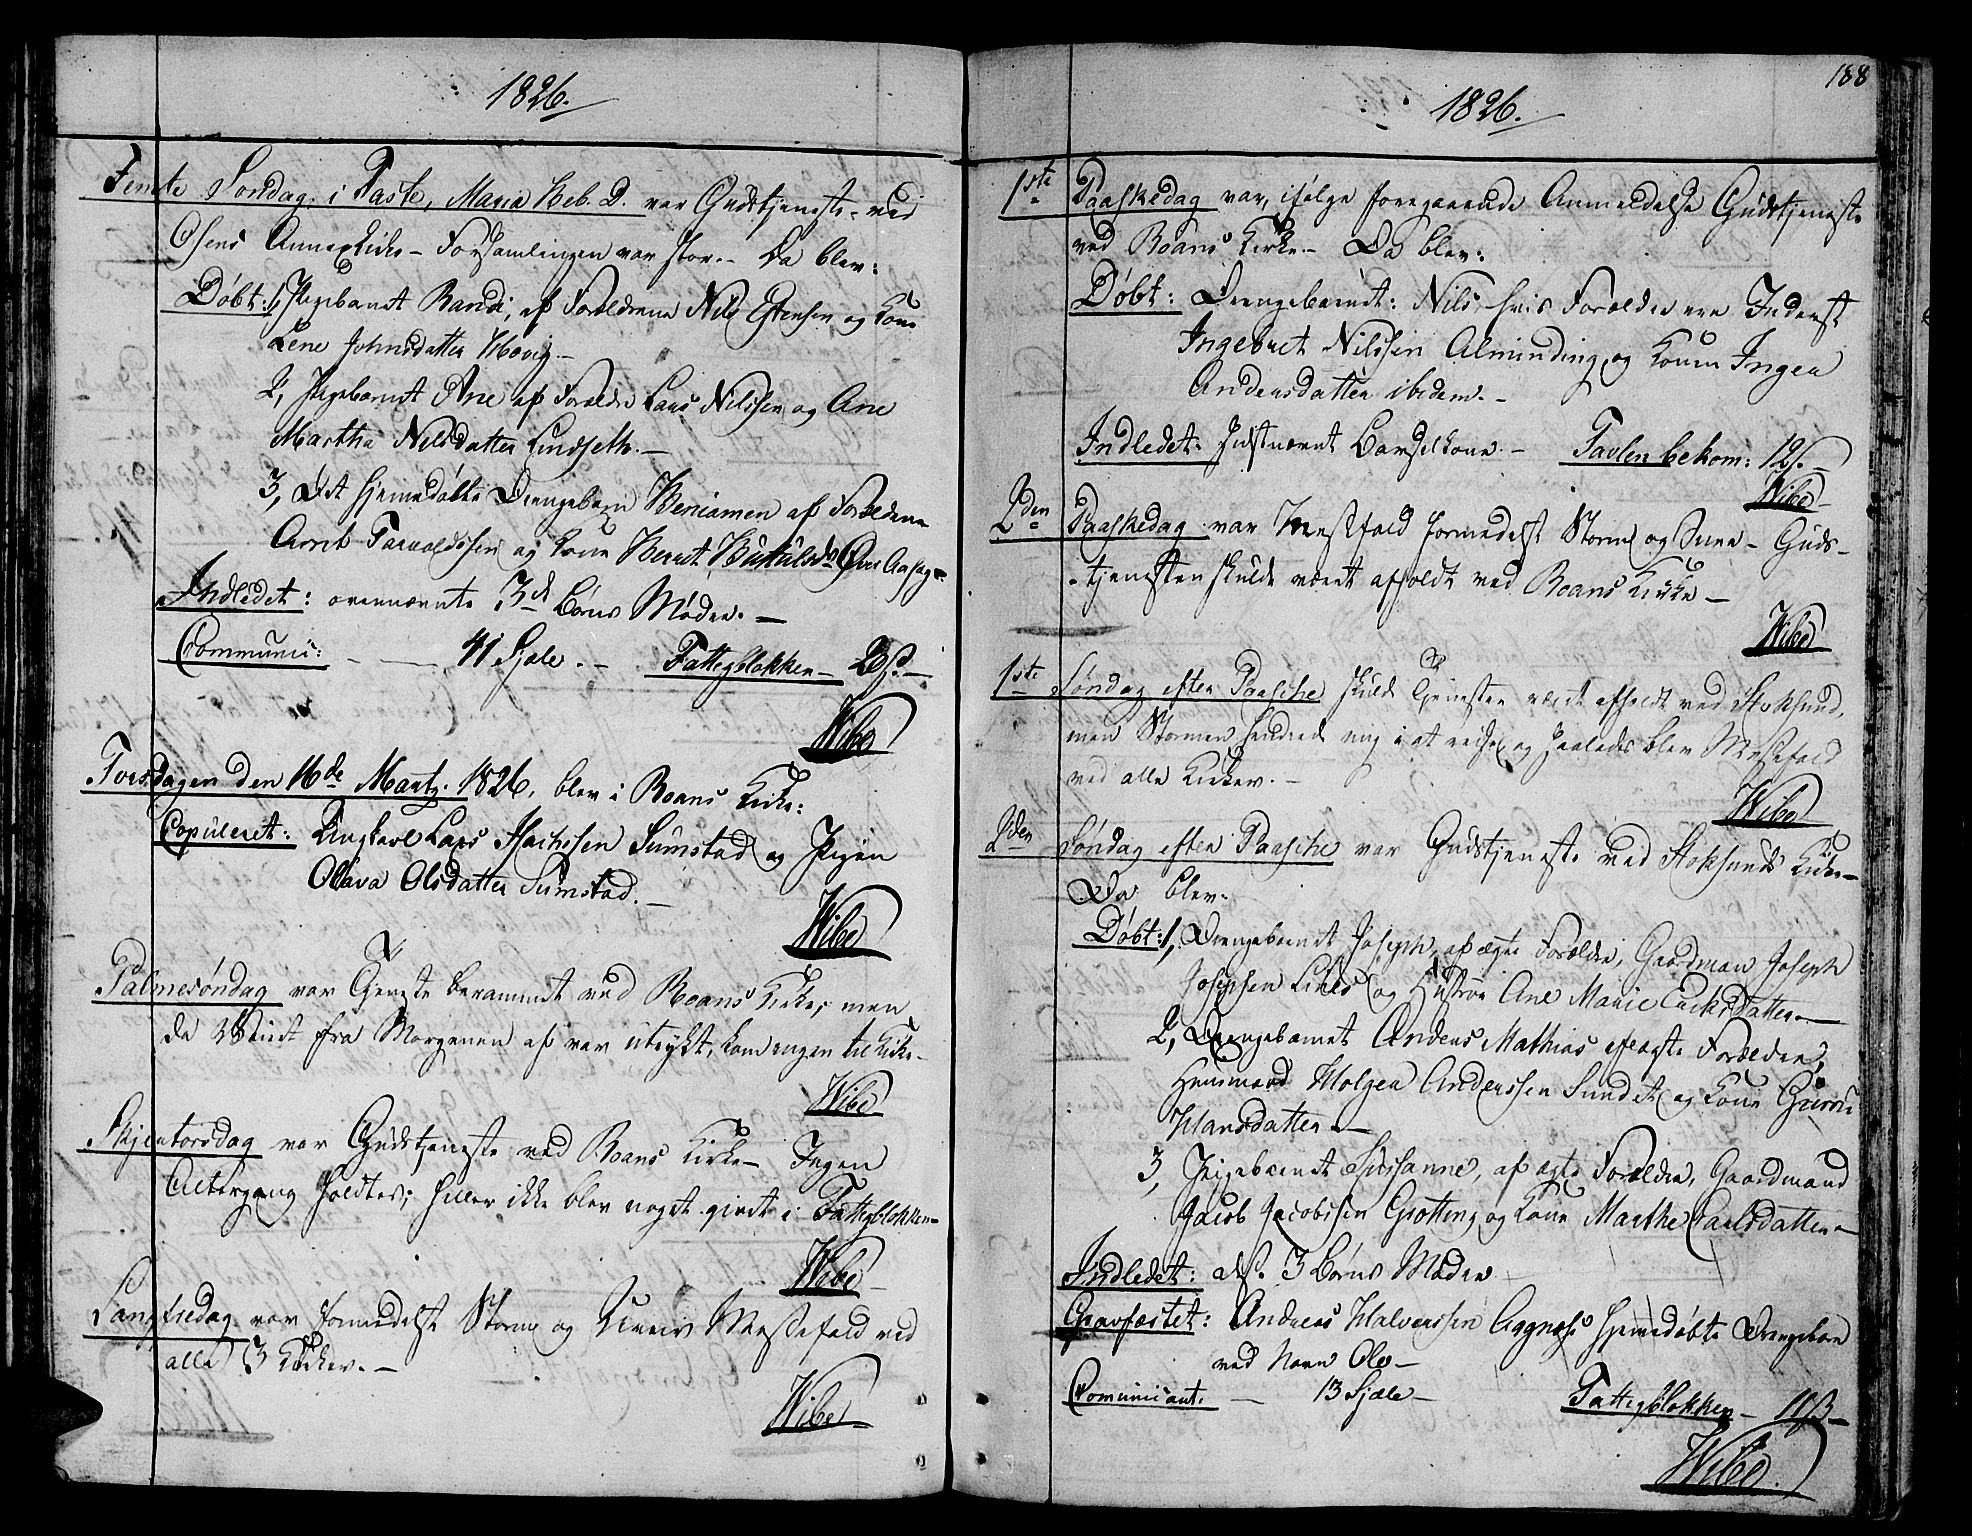 1826.
Femte Søndag i Faste, Maria Beb. D. var Gudstjeneste ved
Osens Annexkirke – Forsamlingen var stor. – Da blev:
Døbt: 1, Pigebarnet Randi, af Forældrene Nils Estensen og Kone
Lene Johnsdatter Hovig. –
2, Pigebarnet Ane af Forældre Lars Nilssen og Ane
Martha Nilsdatter Lindseth. –
3, Det hjemedøbte Drengebarn Beniamen af Forældrene
Arnt Tarvaldssen og Kone Berret
Indledet: ovennævnte 3de Børns Mødre. –
Communic: – 41 Sjæle. – Fattigblokken –
Wibe
Torsdagen den 16de Martz. 1826, blev i Roans Kirke:
Copuleret: Ungkarl Lars Sumstad og Pigen
Olava Olsdatter Sumstad. –
Wibe
Palmesøndag var Tjeneste berammet ved Roans Kirke, men
da Veiret fra Morgenen af var utrykt, kom ingen til Kirke –
Wibe
Skjertorsdag var Gudstjeneste ved Roans Kirke – Ingen
Altergang holdtes; heller ikke blev noget givet i Fattigblokken –
Wibe
Langfredag var formedelst Storm og Uveir Messefald ved
alle 3 Kirker. –
Wibe
188
1826.
1ste Paaskedag var, ifølge foregaaende Anmeldelse Gudstjeneste
ved Roans Kirke. – Da blev:
Døbt: Drengebarnet: Nils, hvis Forældre ere Inderst
Ingebret Nilssen Alminding og Konen Inger
Andersdatter ibidem. –
Indledet: sidstnævnt Barselkone. – Tavlen bekom: 12s. –
Wibe
2den Paaskedag var Messefald formedelst Storm og Snee – Guds-
tjenesten skulde været afholdt ved Roans Kirke –
Wibe
1ste Søndag efter Paasche skulde Tjenesten været afholdt ved Stoksund,
men Stormen hindrede mig i at reise, og saaledes blev Messefald
ved alle Kirker. –
Wibe
2den Søndag efter Paasche var Gudstjeneste ved Stoksunds Kirke –
Da blev:
Døbt: 1, Drengebarnet Joseph, af ægte Forældre, Gaardmand Joseph
Josephsen og Hustrue Ane Marie
2, Drengebarnet Anders Mathias af ægte Forældre,
Huusmand Holger Anderssen Sundet og Kone Gurru
Hansdatter. –
3, Pigebarnet Sussanne, af ægte Forældre, Gaardmand
Jacob Jacobssen Grotting og Kone Marthe Carlsdatter –
Indledet: disse 3 Børns Mødre –
Gravfæstet: Andreas Halverssen hjemedøbte Drengebarn
ved Navn Ole –
Comunicant: – 13 Sjæle – Fattigblokken – 11ß –
Wibe.